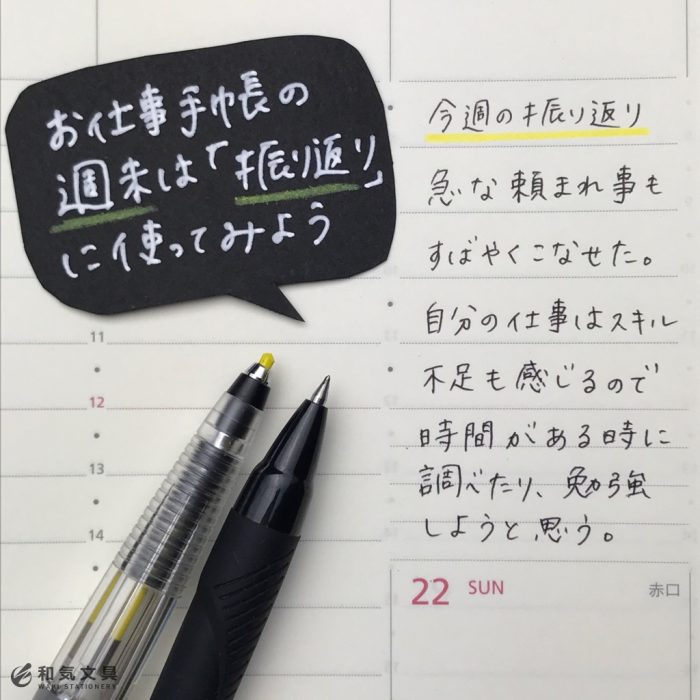 お仕事手帳の
週末は「振り返り」
に使ってみよう
今週の振り返り
急な頼まれ事も
すばやくこなせた。
自分の仕事はスキル
不足も感じるので
時間がある時に
調べたり、勉強
しようと思う。
11
12
13
14
22 SUN 赤口
和気文具
WAKI STATIONERY